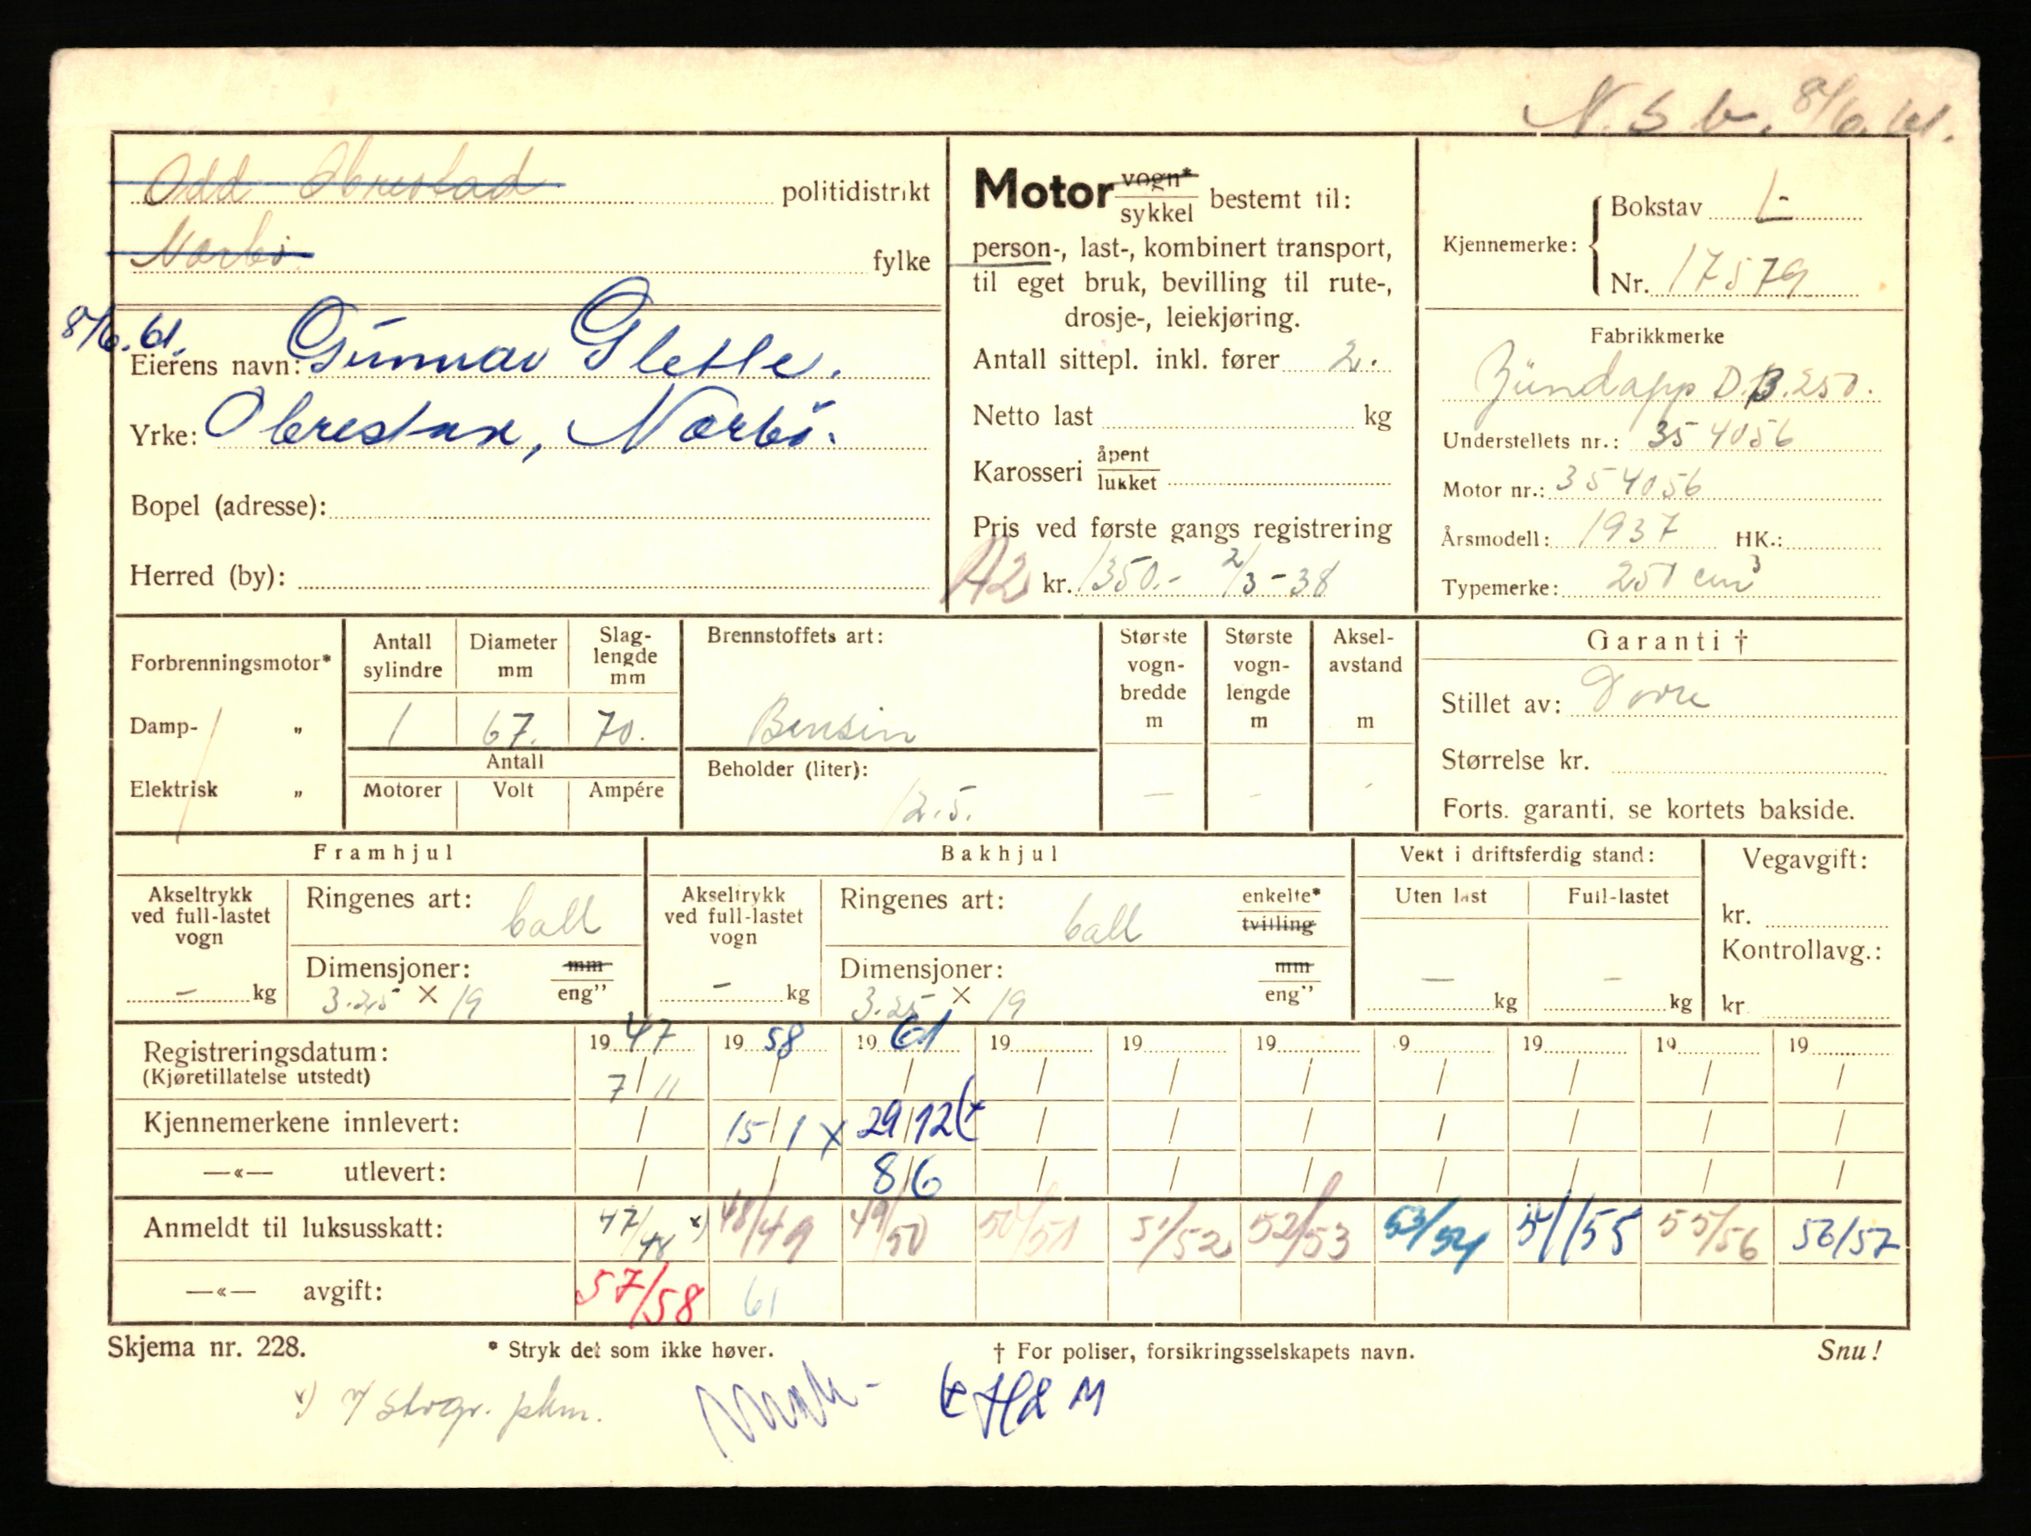 N. S. b. 8/6. 61.
Odd Obrestad politidistrikt
Nærbø fylke
8/6. 61.
Eierens navn: Gunnar Gletle.
Yrke: Obrestad, Nærbø.
Bopel (adresse):
Herred (by):
Motor vogn* / sykkel bestemt til:
person-, last-, kombinert transport,
til eget bruk, bevilling til rute-,
drosje-, leiekjøring.
Antall sittepl. inkl. fører 2.
Netto last kg
Karosseri åpent / lukket
Pris ved første gangs registrering
A2 kr. 1350.- 2/3-38
Kjennemerke: Bokstav L-
Nr. 17579
Fabrikkmerke
Zündapp D.B. 250.
Understellets nr.: 354056
Motor nr.: 354056
Årsmodell: 1937 HK.:
Typemerke: 250 cm³
Forbrenningsmotor*
Damp- „
Elektrisk „
Antall sylindre Diameter mm Slag-lengde mm
1 67. 70.
Antall
Motorer Volt Ampére
Brennstoffets art:
Bensin
Beholder (liter):
12.5.
Største vogn-bredde m
Største vogn-lengde m
Aksel-avstand m
— - -
Garanti †
Stillet av: Dovre
Størrelse kr.
Forts. garanti, se kortets bakside.
Framhjul
Akseltrykk ved full-lastet vogn
— kg
Ringenes art: ball
Dimensjoner: mm / eng"
3.25 × 19
Bakhjul
Akseltrykk ved full-lastet vogn
— kg
Ringenes art: ball enkelte* / tvilling
Dimensjoner: mm / eng"
3.25 × 19
Vekt i driftsferdig stand:
Uten last Full-lastet
— kg — kg
Vegavgift:
kr.
Kontrollavg.:
kr
Registreringsdatum: 1947 1958 1961 19 19 19 9 19 19 19
(Kjøretillatelse utstedt) 7/11 / / / / / / / / /
Kjennemerkene innlevert: / 15/1 x 29/12 / / / / / / /
—«— utlevert: / / 8/6 / / / / / / /
Anmeldt til luksusskatt: 47/48 x) 48/49 49/50 50/51 51/52 52/53 53/54 54/55 55/56 56/57
—«— avgift: 57/58 61
Skjema nr. 228. * Stryk det som ikke høver. † For poliser, forsikringsselskapets navn. Snu!